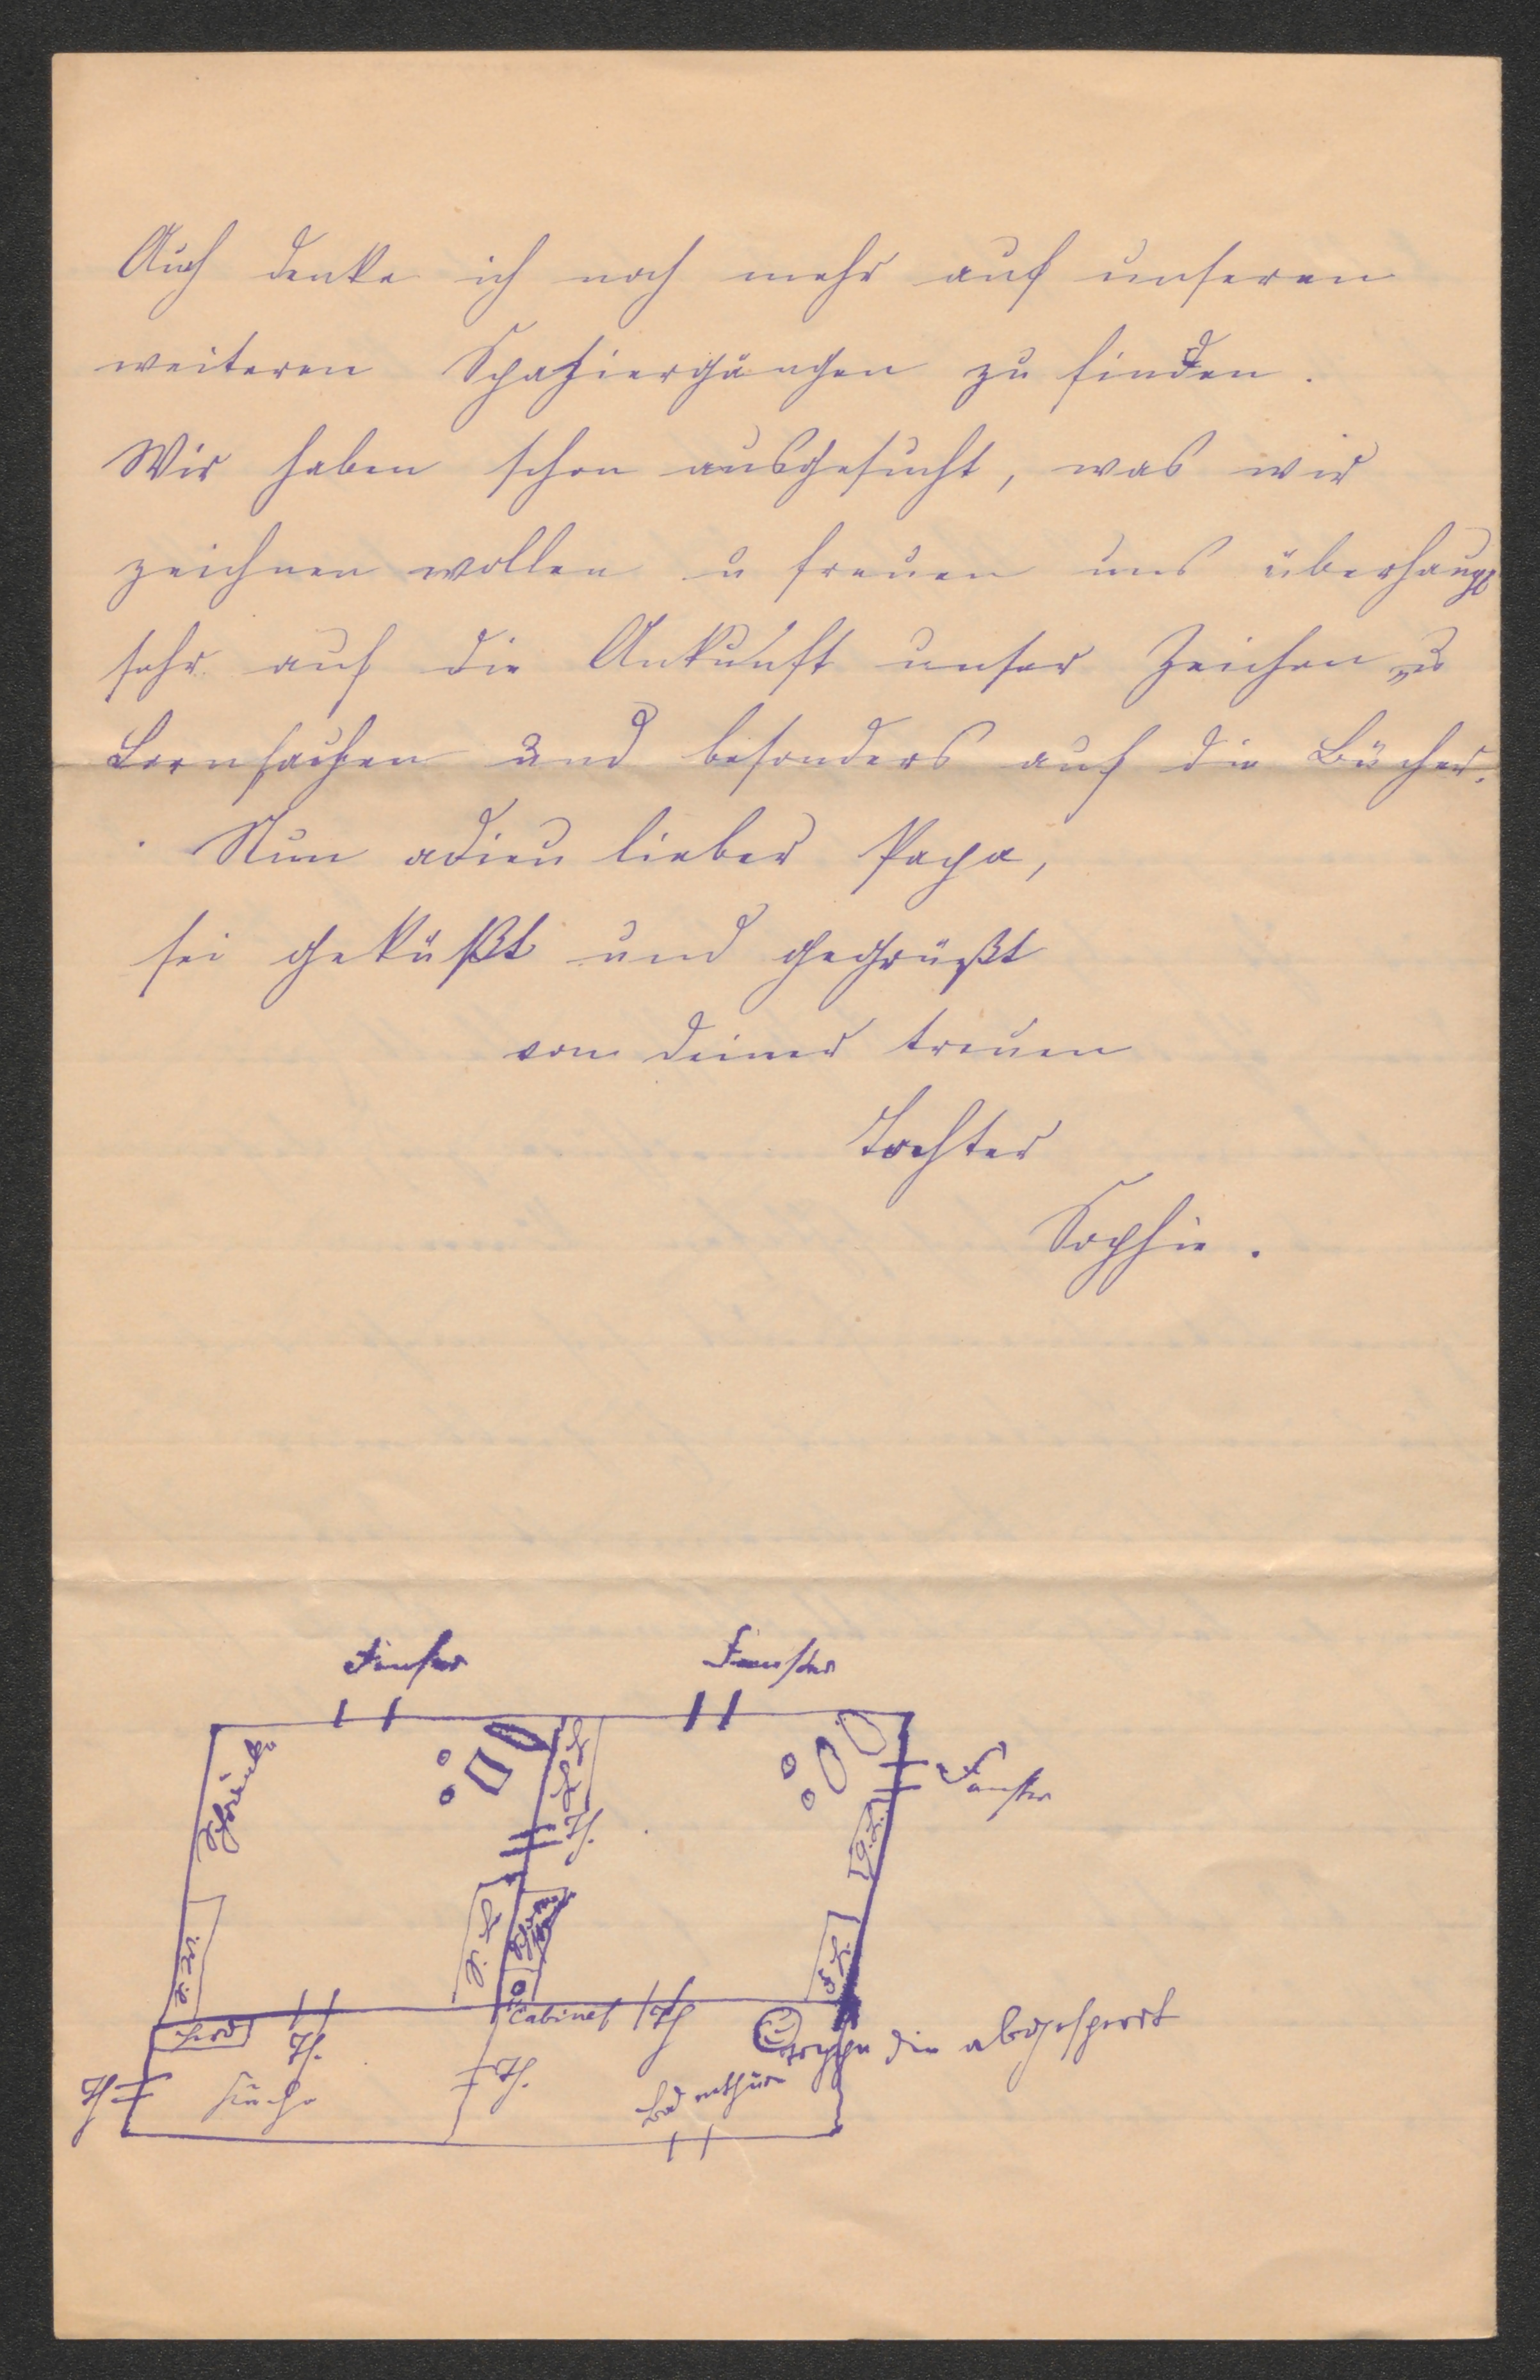 Auch denke ich noch mehr auf unseren
weiteren Spaziergängen zu finden.
Wir haben schon ausgesucht, was wir
zeichnen wollen u freuen uns überhaupt
sehr auf die Ankunft unser Zeichen u
Lernsachen und besonders auf die Bücher.
Nun adieu lieber Papa,
sei geküßt und gegrüßt
von deiner treuen
Tochter
Sophie.
Fenster Fenster
Schränke
Fenster
Th.
Cabinet Th
Herd Th.
Treppe die abgesperrt
Th Küche Th.